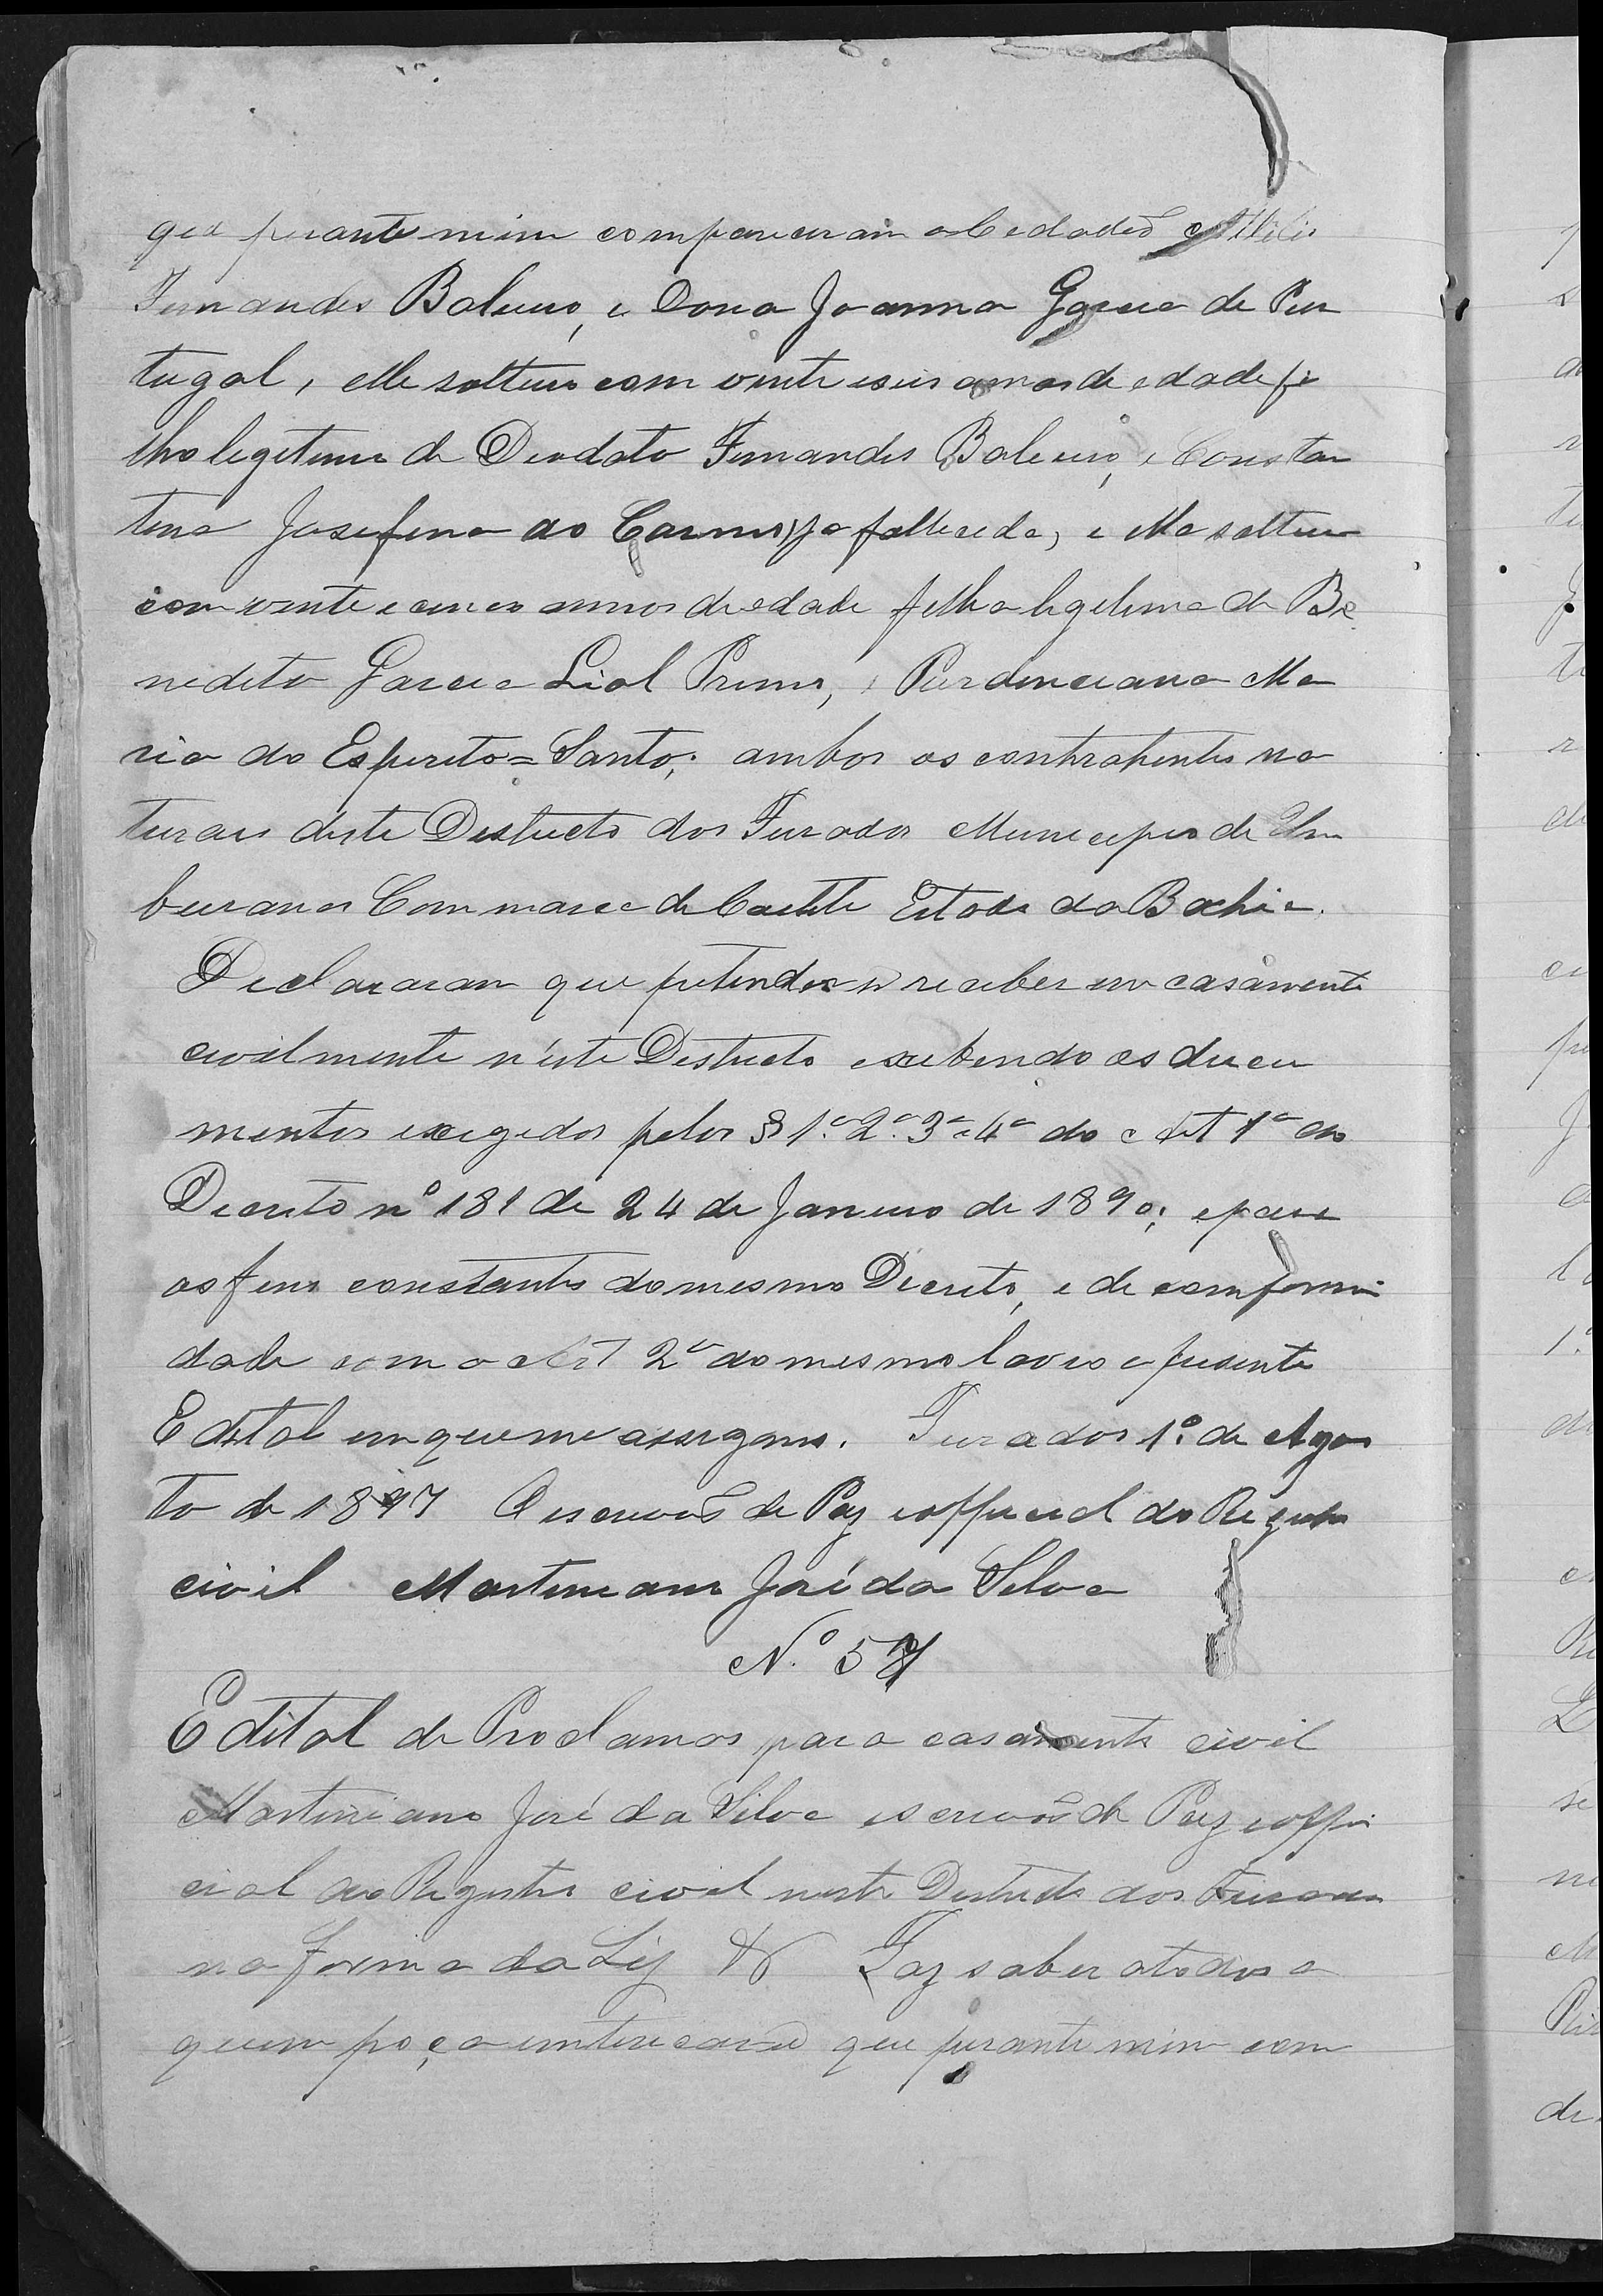 que perante mim compareceram o Cedadão
Fernandes Baleeiro, e Dona Joanna Garcia de Pur
tugal, elle solteiro com vinte e seis annos de edade fi
lho legitimo de Deodato Fernandes Baleeiro, e Constan
tina Josefina do Carmo, ja fallecida, e ella solteira
com vinte e cinco annos de edade filha legitima de Be
nedito Garcia Lial Primo, e Purdenciana Ma
ria do Esperito=Santo; ambos os contrahentes na
turaes deste Destricto dos Furados Municipio de Um
buranas Commarca de Caetité Estado da Bahia.
Declararam que pretendem se receber em casamento
civilmente n'este Destricto exebendo os ducu
mentos exegedos pelos § 1º 2º 3º e 4º do Art 1º do
Decreto nº 181 de 24 de Janeiro de 1890; e para
os fins constantes do mesmo Decreto, e de comformi
dade com o Art 2º do mesmo lavro o presente
Edital em que me assigno. Furados 1º de Agos
to de 1897 O escrivaõ de Paz e official do Registro
civil Martiniano José da Silva
Nº 57
Edital de Proclamas para casamento civil
Martiniano José da Silva escrivaõ de Paz e offi
cial do Registro civil neste Destricto dos Furados
na forma da Ley & Faz saber a todos a
quem poça interecar que perante mim com